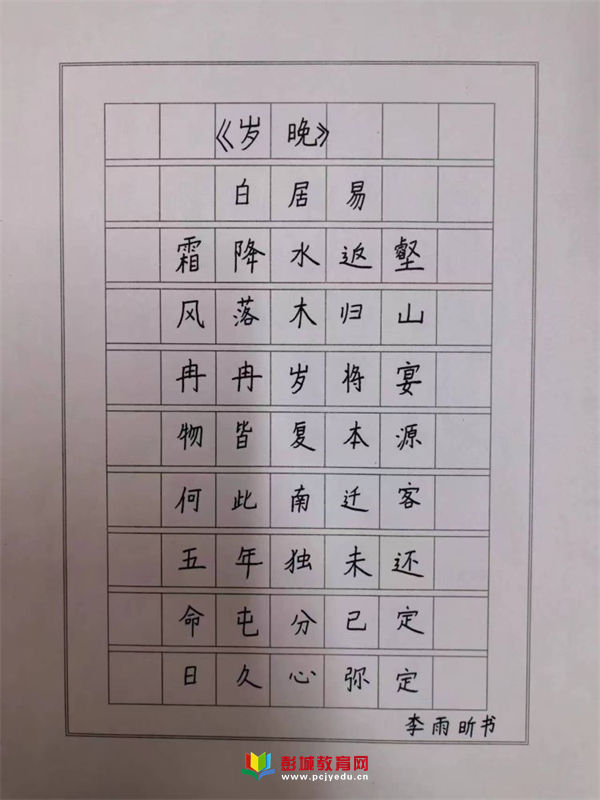 《岁晚》
白居易
霜降水返壑
风落木归山
冉冉岁将宴
物皆复本源
何此南迁客
五年独未还
命屯分已定
日久心弥定
李雨昕书
彭城教育网
www.pcjyedu.cn